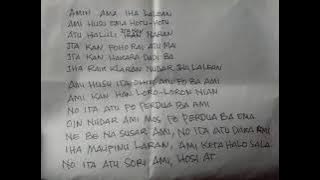 AMIN AMA IHA LALEAN
AMI HUSU EMA HOTU-HOTU
ATU HALULI ITA NARAN
ITA KAN FOHO RAI ATU MAI
ITA KAN HAKARA DADI BA
IHA RAIK LARAN NUDAR IHA LALEAN
AMI HUSU ITA OHIN ATU FO BA AMI
AMI KAN HAN LORO-LORON NIAN
NO ITA ATU PERDUA BA AMI
OIN NUDAR AMI MOS FO PERDUA BA EMA
NE BE NA SUSAR AMI, NO ITA ATU DAKA AMI
IHA MAUPING LARAN, AMI KETA HALO SALA
NO ITA ATU SORI AMI, HOSI AT